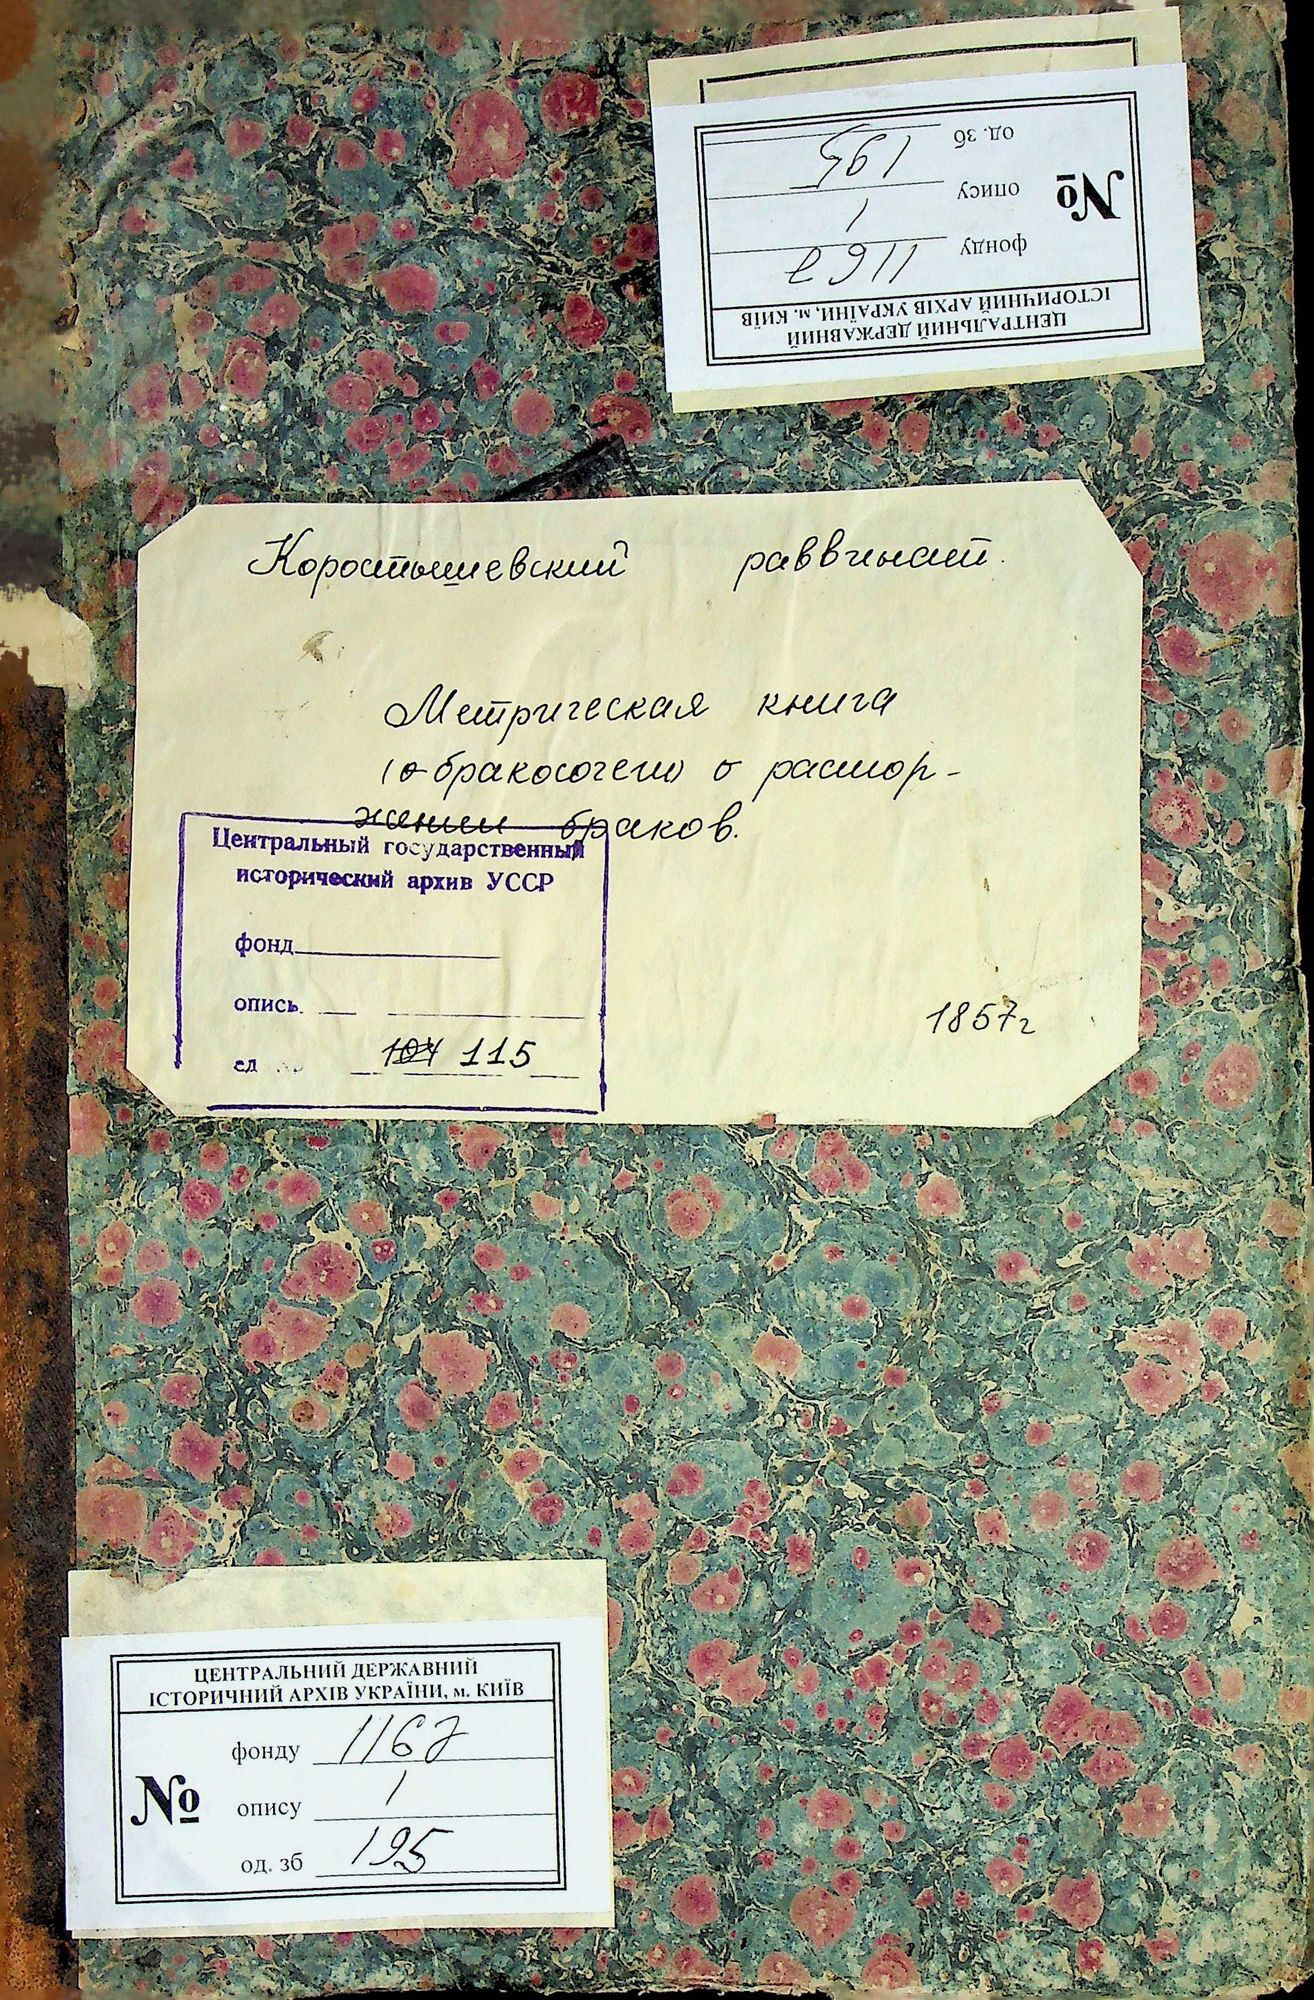 ЦЕНТРАЛЬНИЙ ДЕРЖАВНИЙ
ІСТОРИЧНИЙ АРХІВ УКРАЇНИ, м. КИЇВ
№
фонду 1167
опису 1
од. зб 195
Коростышевский раввинат.
Метрическая книга
(о бракосочет) о растор-
жении браков.
Центральный государственный
исторический архив УССР
фонд
опись
ед хр 104 115
1857г
ЦЕНТРАЛЬНИЙ ДЕРЖАВНИЙ
ІСТОРИЧНИЙ АРХІВ УКРАЇНИ, м. КИЇВ
№
фонду 1167
опису 1
од. зб 195